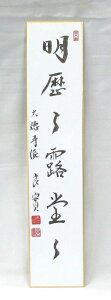 明歴々露堂々
大徳寺派 良寳